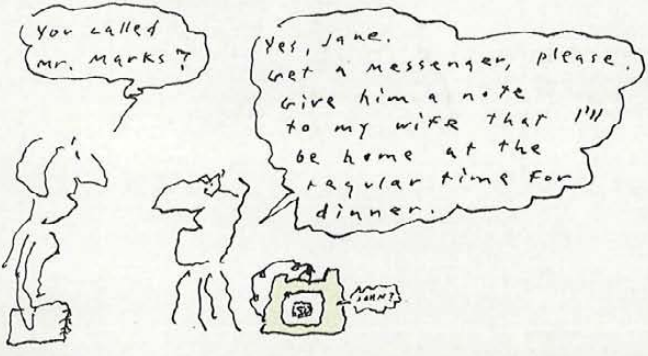 You called
Mr. Marks?
Yes, Jane.
Get a messenger, please.
Give him a note
to my wife that I'll
be home at the
regular time for
dinner.
JOHN?